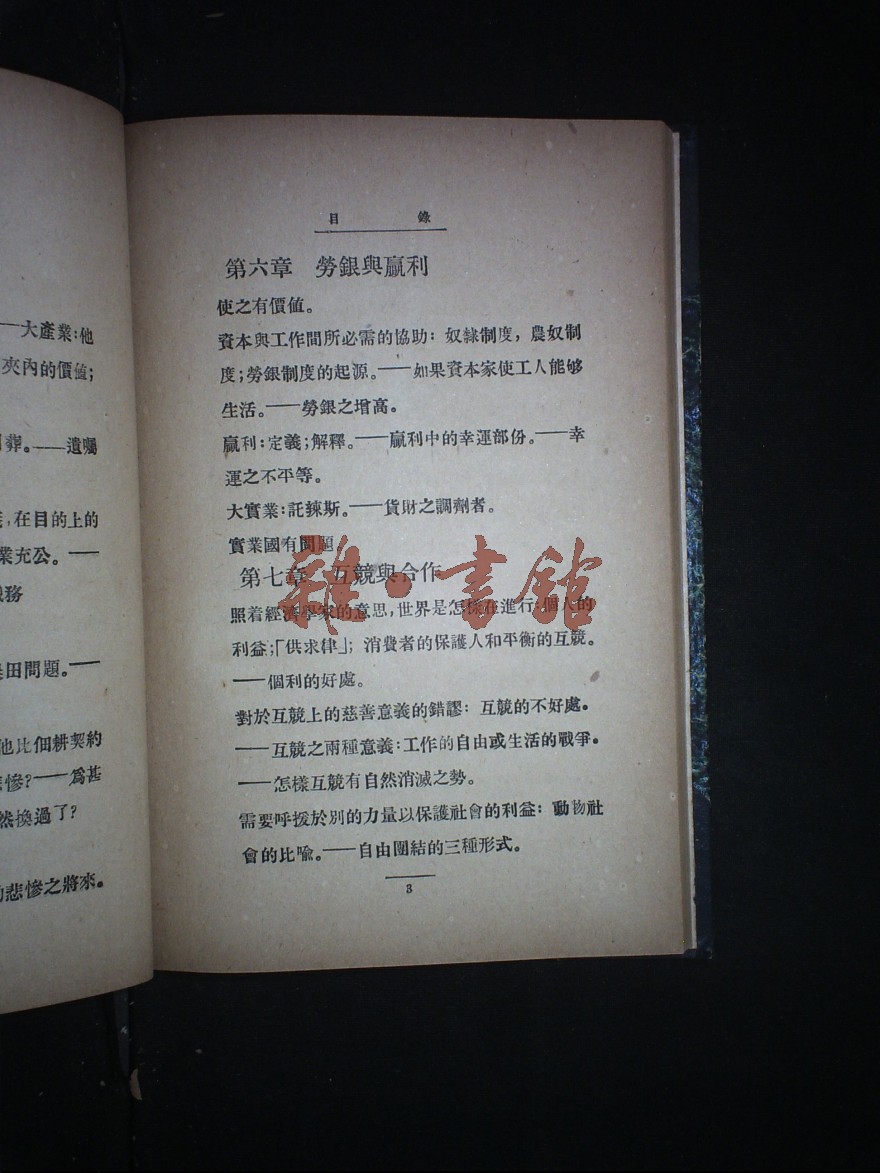 大產業:他
夾內的價値;
葬。——遺囑
,在目的上的
業充公。——
務
田問題。——
他比佃耕契約
慘?——爲甚
然換過了?
悲慘之將來。
目 錄
第六章 勞銀與贏利
使之有價値。
資本與工作間所必需的協助:奴隸制度,農奴制
度;勞銀制度的起源。——如果資本家使工人能够
生活。——勞銀之增高。
贏利:定義;解釋。——贏利中的幸運部份。——幸
運之不平等。
大實業:託辣斯。——貨財之調劑者。
實業國有問題
第七章 互競與合作
照着經濟學家的意思,世界是怎樣在進行:個人的
利益;「供求律」;消費者的保護人和平衡的互競。
——個利的好處。
對於互競上的慈善意義的錯謬:互競的不好處。
——互競之兩種意義:工作的自由或生活的戰爭。
——怎樣互競有自然消滅之勢。
需要呼援於別的力量以保護社會的利益:動物社
會的比喩。——自由團結的三種形式。
3
雜·書館